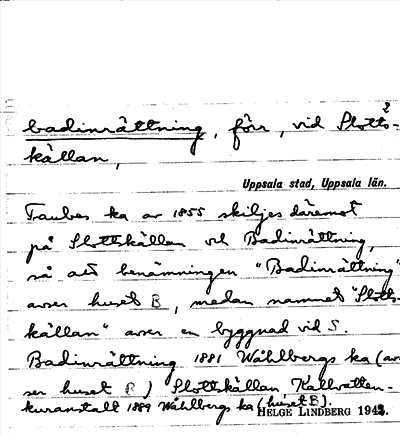 2
badinrättning, förr, vid Slotts-
källan,
Uppsala stad, Uppsala län.
Traubes ka av 1855 skiljes däremot
på Slottskällan och Badinrättning,
så att benämningen "Badinrättning"
avser huset B, medan namnet "Slotts-
källan" avser en byggnad vid S.
Badinrättning 1881 Wåhlbergs ka (av
ser huset B) Slottskällan Kallvatten-
kuranstalt 1889 Wåhlbergs ka (huset B).
HELGE LINDBERG 1942.